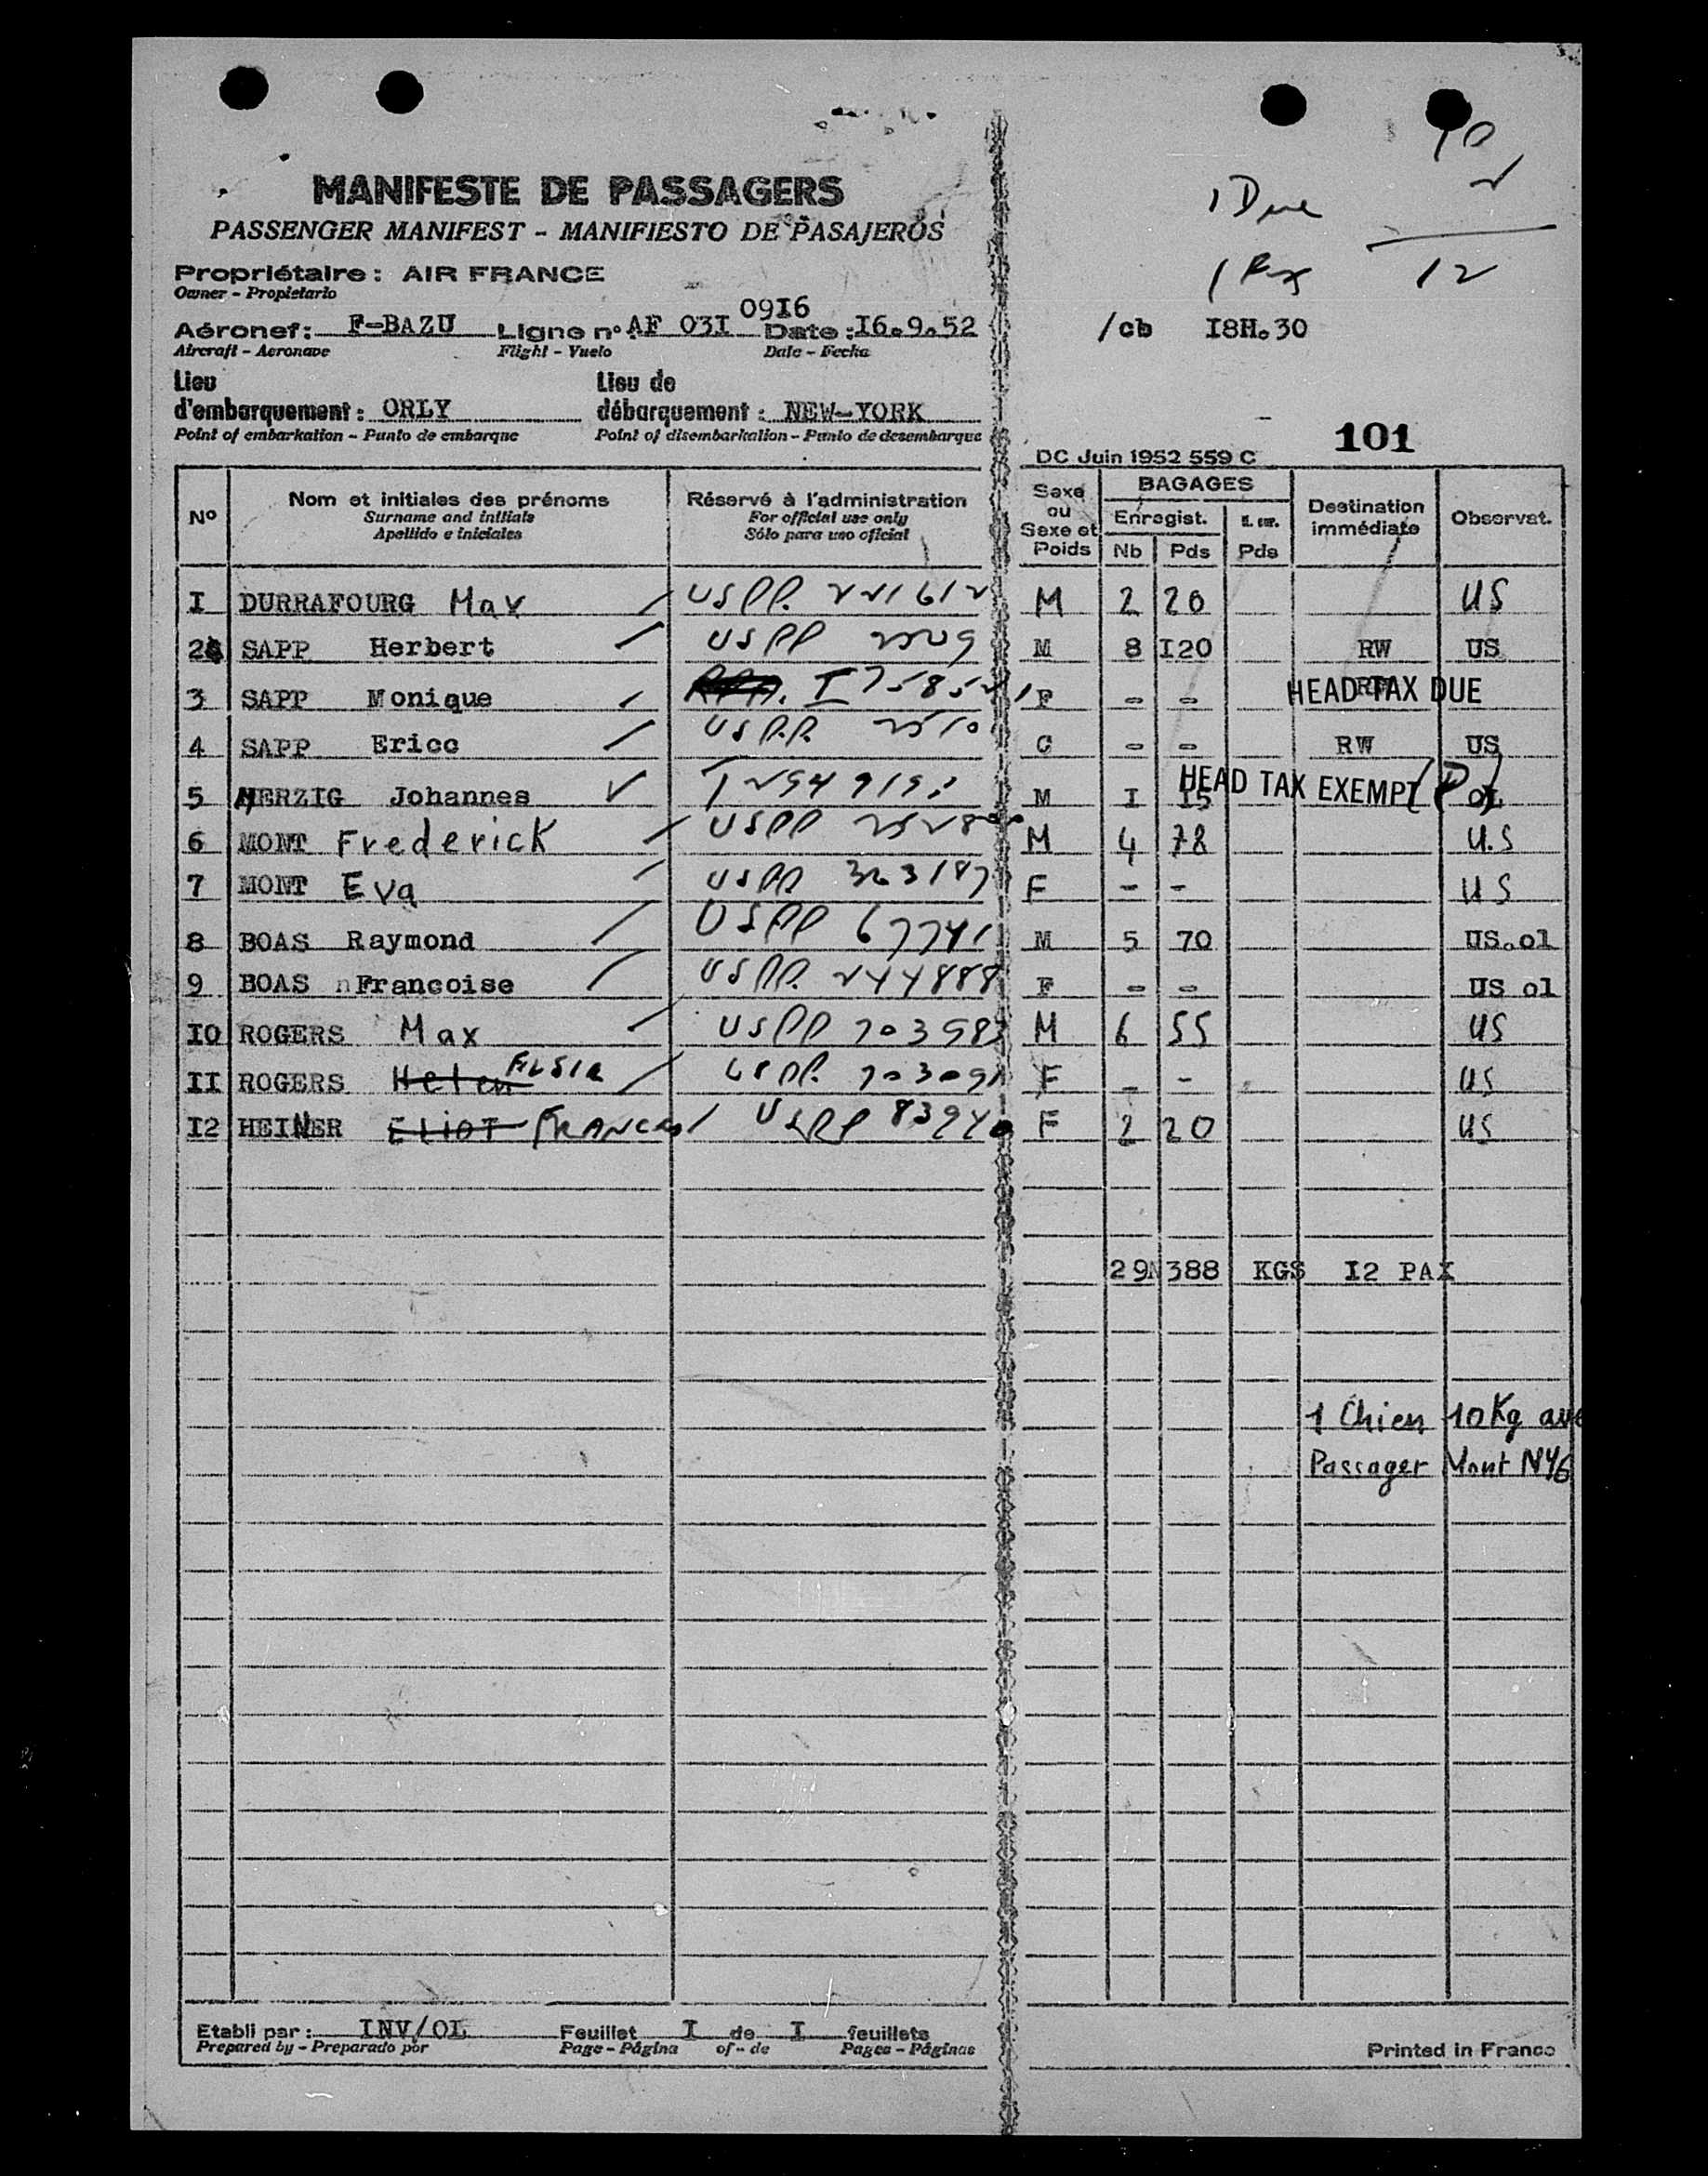 10
2
1 Due
1 Ex
12
MANIFESTE DE PASSAGERS
PASSENGER MANIFEST - MANIFIESTO DE PASAJEROS
Propriétaire : AIR FRANCE
Owner - Propietario
0916
Aéronef : F-BAZU Ligne n° AF 03I Date : I6.9.52 /cb I8H.30
Aircraft - Aeronave Flight - Vuelo Date - Fecha
Lieu d'embarquement : ORLY Lieu de débarquement : NEW-YORK
Point of embarkation - Punto de embarque Point of disembarkation - Punto de desembarque
DC Juin 1952 559 C 101
N° Nom et initiales des prénoms Réservé à l'administration Sexe ou Sexe et Poids BAGAGES Destination immédiate Observat.
Surname and initials For official use only Enregist.
Apellido e iniciales Sólo para uso oficial Nb Pds Pds
I DURRAFOURG Max USPP. 221612 M 2 20 US
2 SAPP Herbert USPP 2509 M 8 I20 RW US
3 SAPP Monique F - - HEAD TAX DUE
4 SAPP Ericc USPP. 2510 C - - RW US
5 HERZIG Johannes M I I5 HEAD TAX EXEMPT (P) OL
6 MONT Frederick USPP M 4 78 U.S
7 MONT Eva USPP 323187 F - - US
8 BOAS Raymond USPP 67741 M 5 70 US.ol
9 BOAS nFrancoise USPP. 244888 F - - US ol
IO ROGERS Max USPP 703983 M 6 55 US
II ROGERS Helen ELSIE USPP. F - - US
I2 HEINER ELIOT FRANCES USPP 83940 F 2 20 US
29N 388 KGS I2 PAX
1 Chien 10Kg ave
Passager Mont N°6
Etabli par : INV/OL Feuillet I de I feuillets
Prepared by - Preparado por Page - Página of - de Pages - Páginas
Printed in France